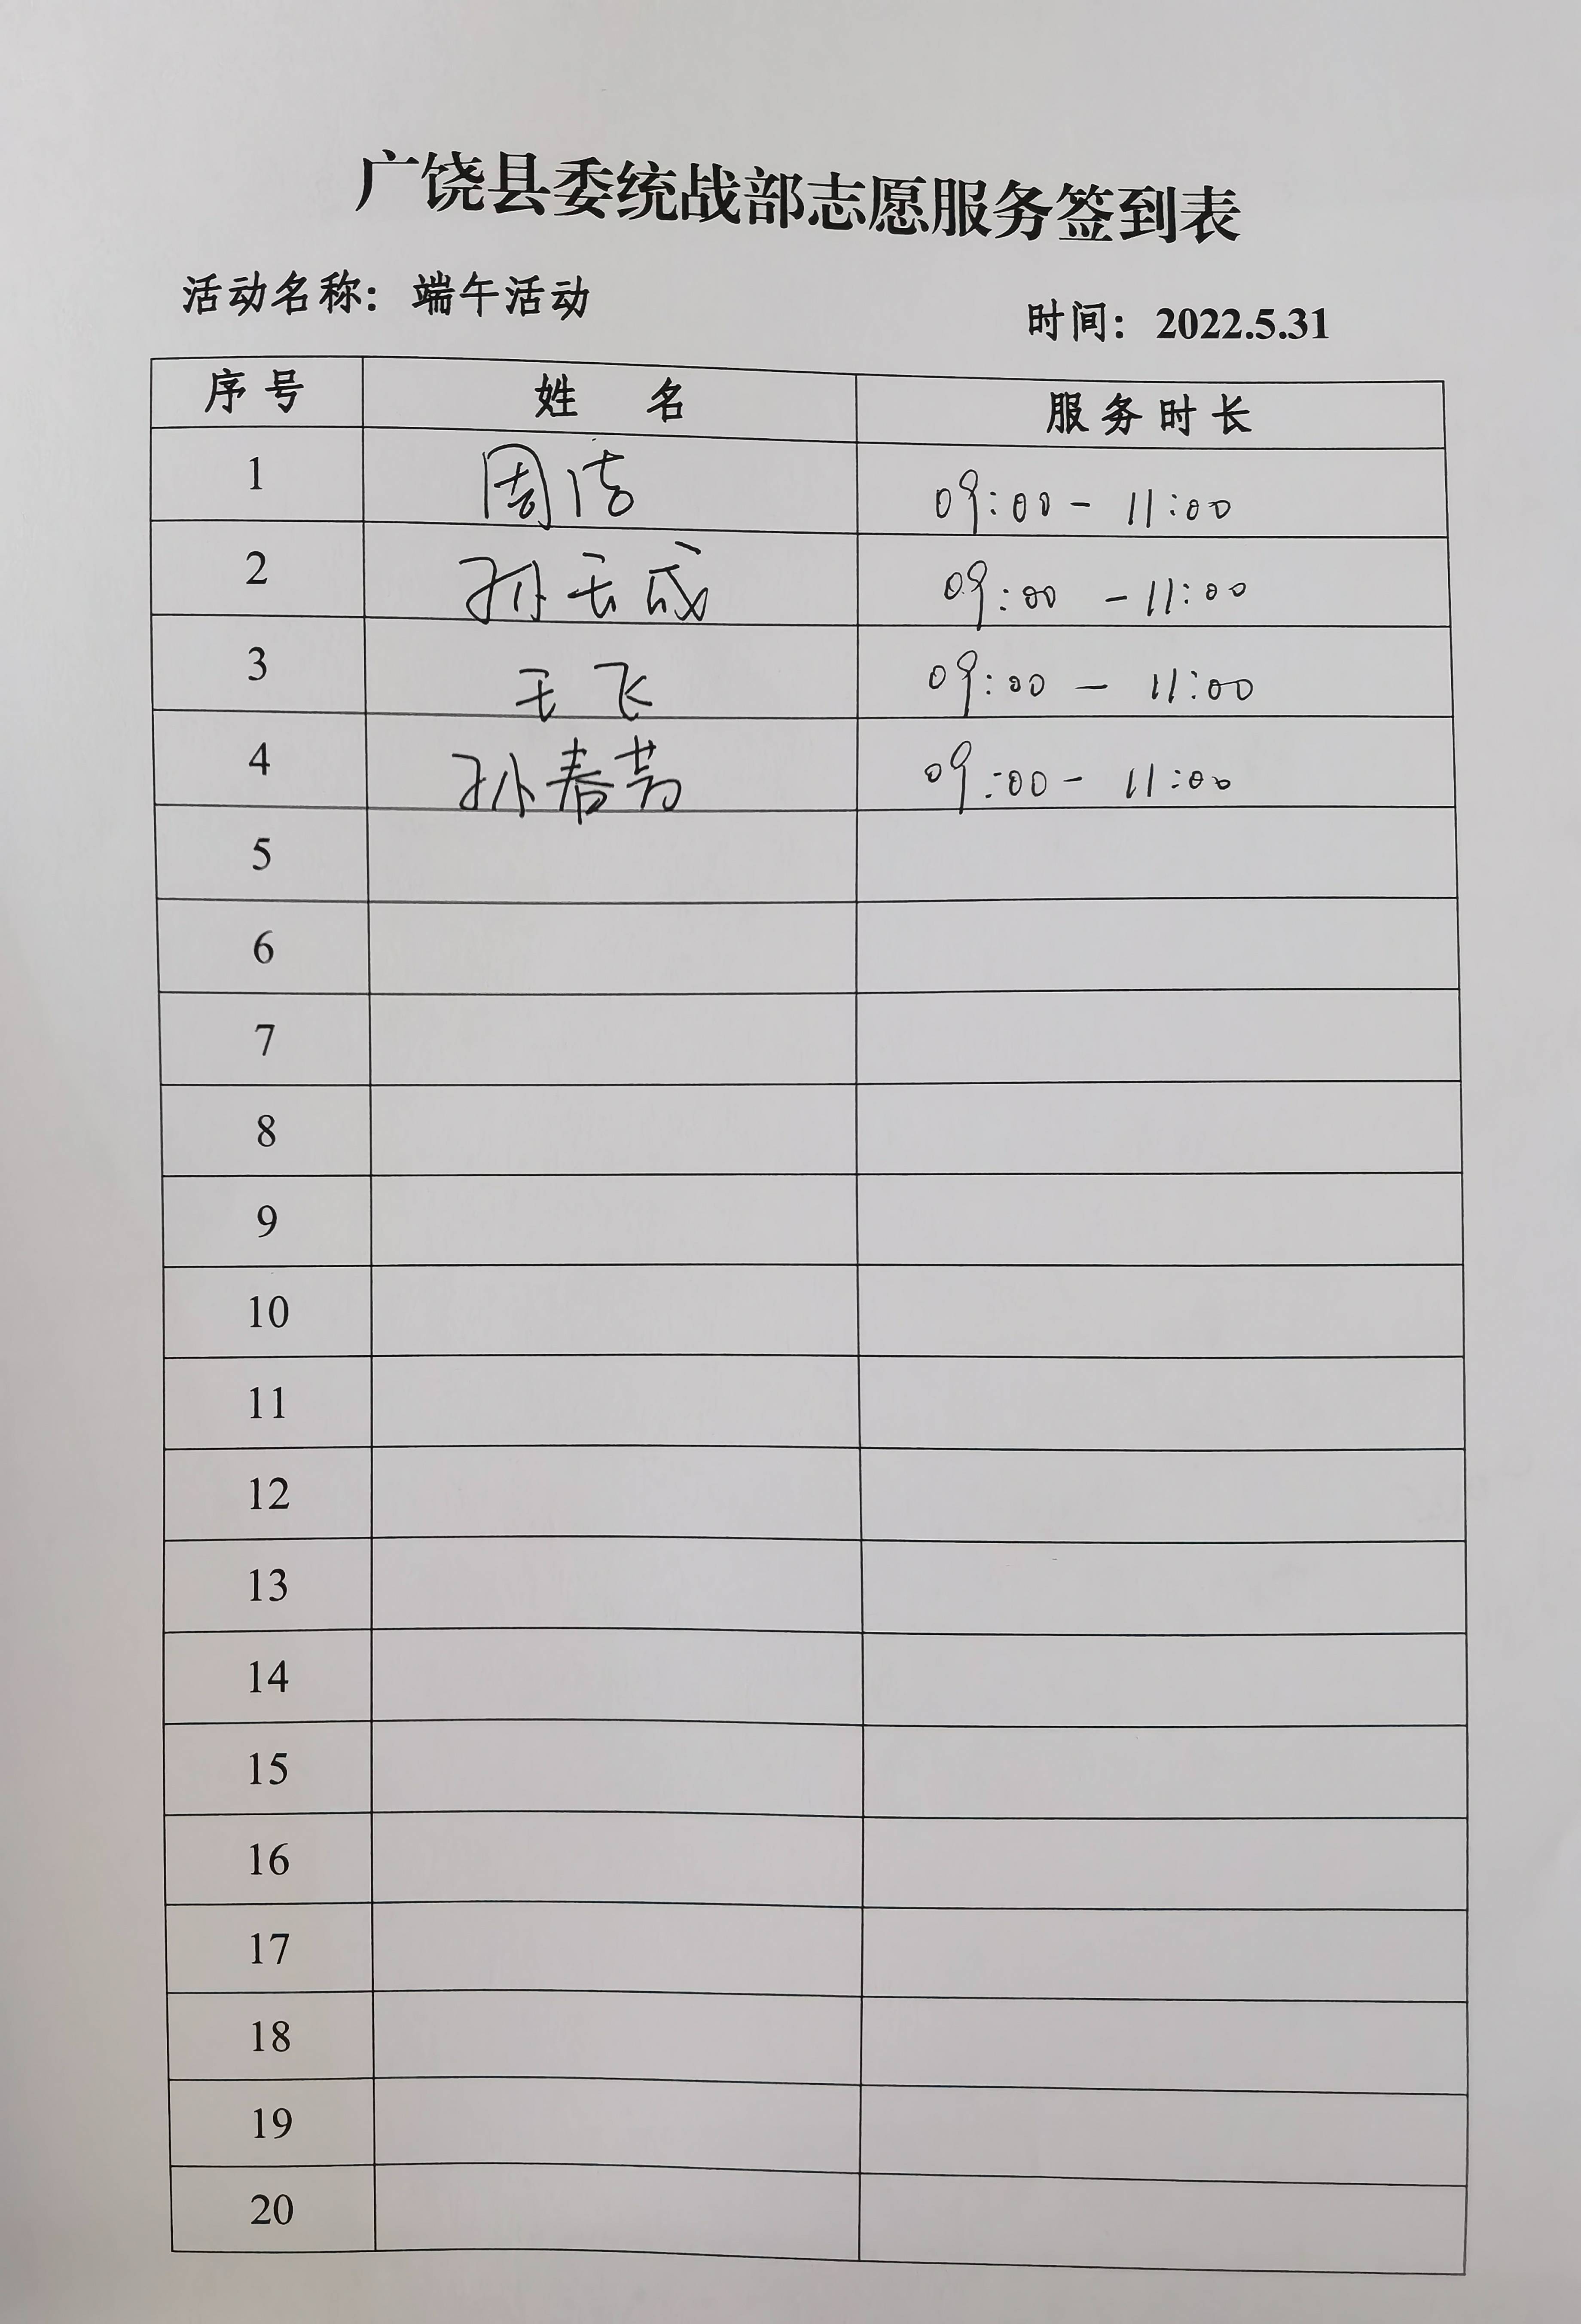 广饶县委统战部志愿服务签到表
活动名称：端午活动
时间：2022.5.31
序号 姓 名 服务时长
1 周洁 09:00 - 11:00
2 孙玉成 09:00 - 11:00
3 王飞 09:00 - 11:00
4 孙春芳 09:00 - 11:00
5
6
7
8
9
10
11
12
13
14
15
16
17
18
19
20